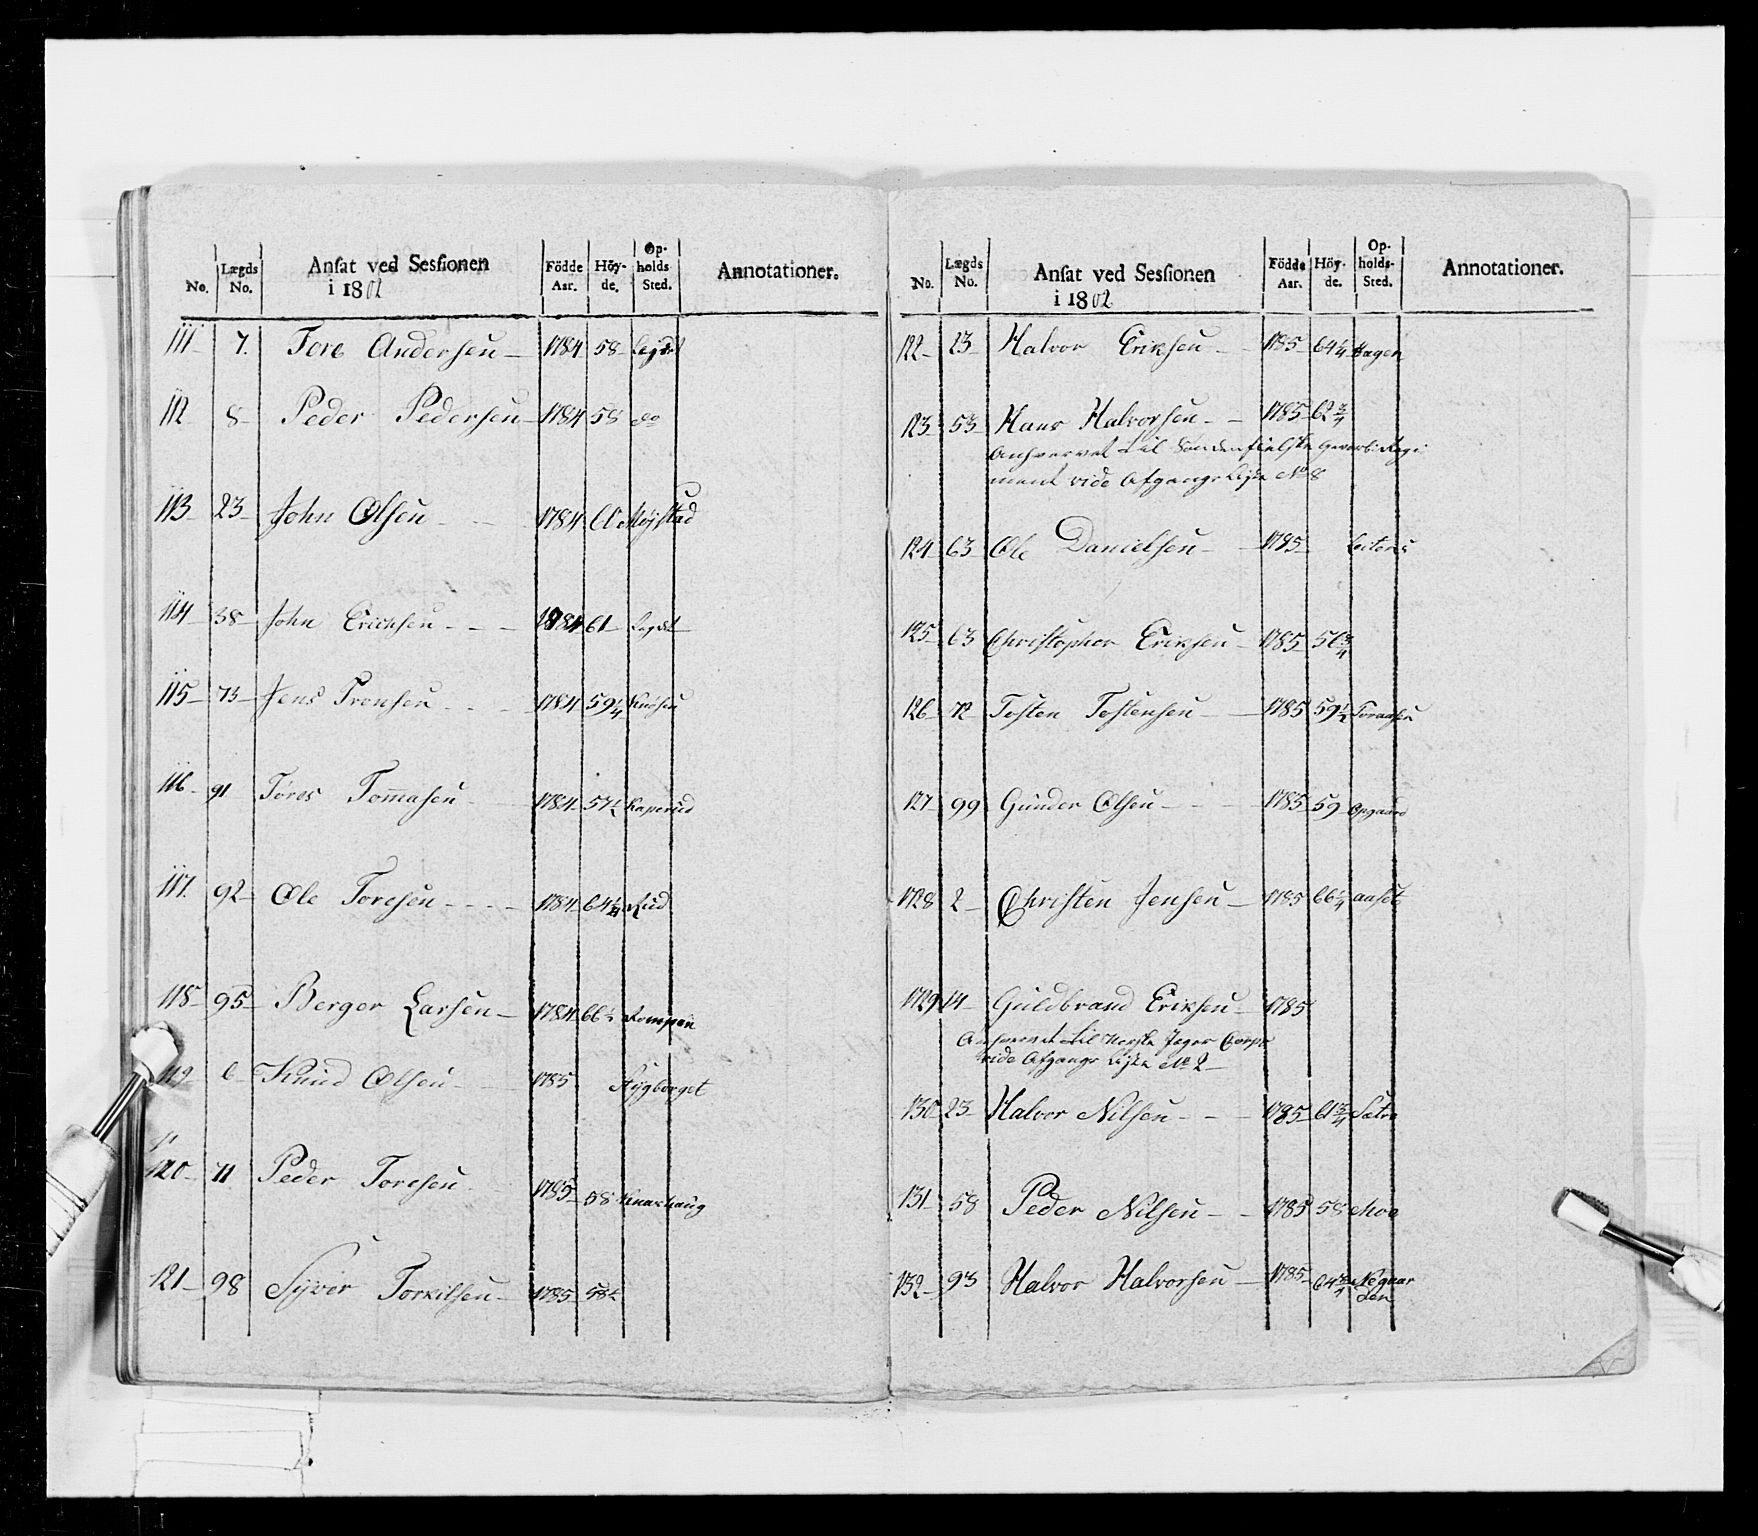 No. Lægds No. Ansat ved Sessionen i 1802 Födde Aar. Höy-de. Op-holds-Sted. Annotationer.
111 7. Tore Andersen 1784 58
112 8 Peder Pedersen 1784 58 do
113 23 John Olsen 1784 Møystad
114 38 John Erichsen 1784 61
115 73 Jens Tronsen 1784 59 1/4
116 91 Tores Tommasen 1784 57 1/2 Kaperud
117 92 Ole Toresen 1784 64 1/4 Rud
118 95 Berger Larsen 1784 66 1/2 Rompen
119 6 Knud Olsen 1785
120 71 Peder Toresen 1785 58
121 98 Syver Torkilsen 1785 58 1/2
No. Lægds No. Ansat ved Sessionen i 1802 Födde Aar. Höy-de. Op-holds-Sted. Annotationer.
122 23 Halvor Eriksen 1785 64 1/4 Hagen
123 53 Hans Halvorsen 1785 62 3/4
Anhvervet til Søndenfielske Gevorb: Regi
ment vide Afgangs Liste No 8
124 63 Ole Danielsen 1785
125 63 Christopher Eriksen 1785 56 3/4
126 72 Tosten Tostensen 1785 59 1/2
127 99 Gunder Olsen 1785 59 Opgaard
128 2 Christen Jensen 1785 66 1/4
129 14 Guldbrand Eriksen 1785
Anhvervet til Norske Jeger Corps
vide Afgangs Liste No 2
130 23 Halvor Nilsen 1785 61 3/4 Sætre
131 58 Peder Nilsen 1785 58 Moe
132 93 Halvor Halvorsen 1785 64 3/4 Nøgaar
den